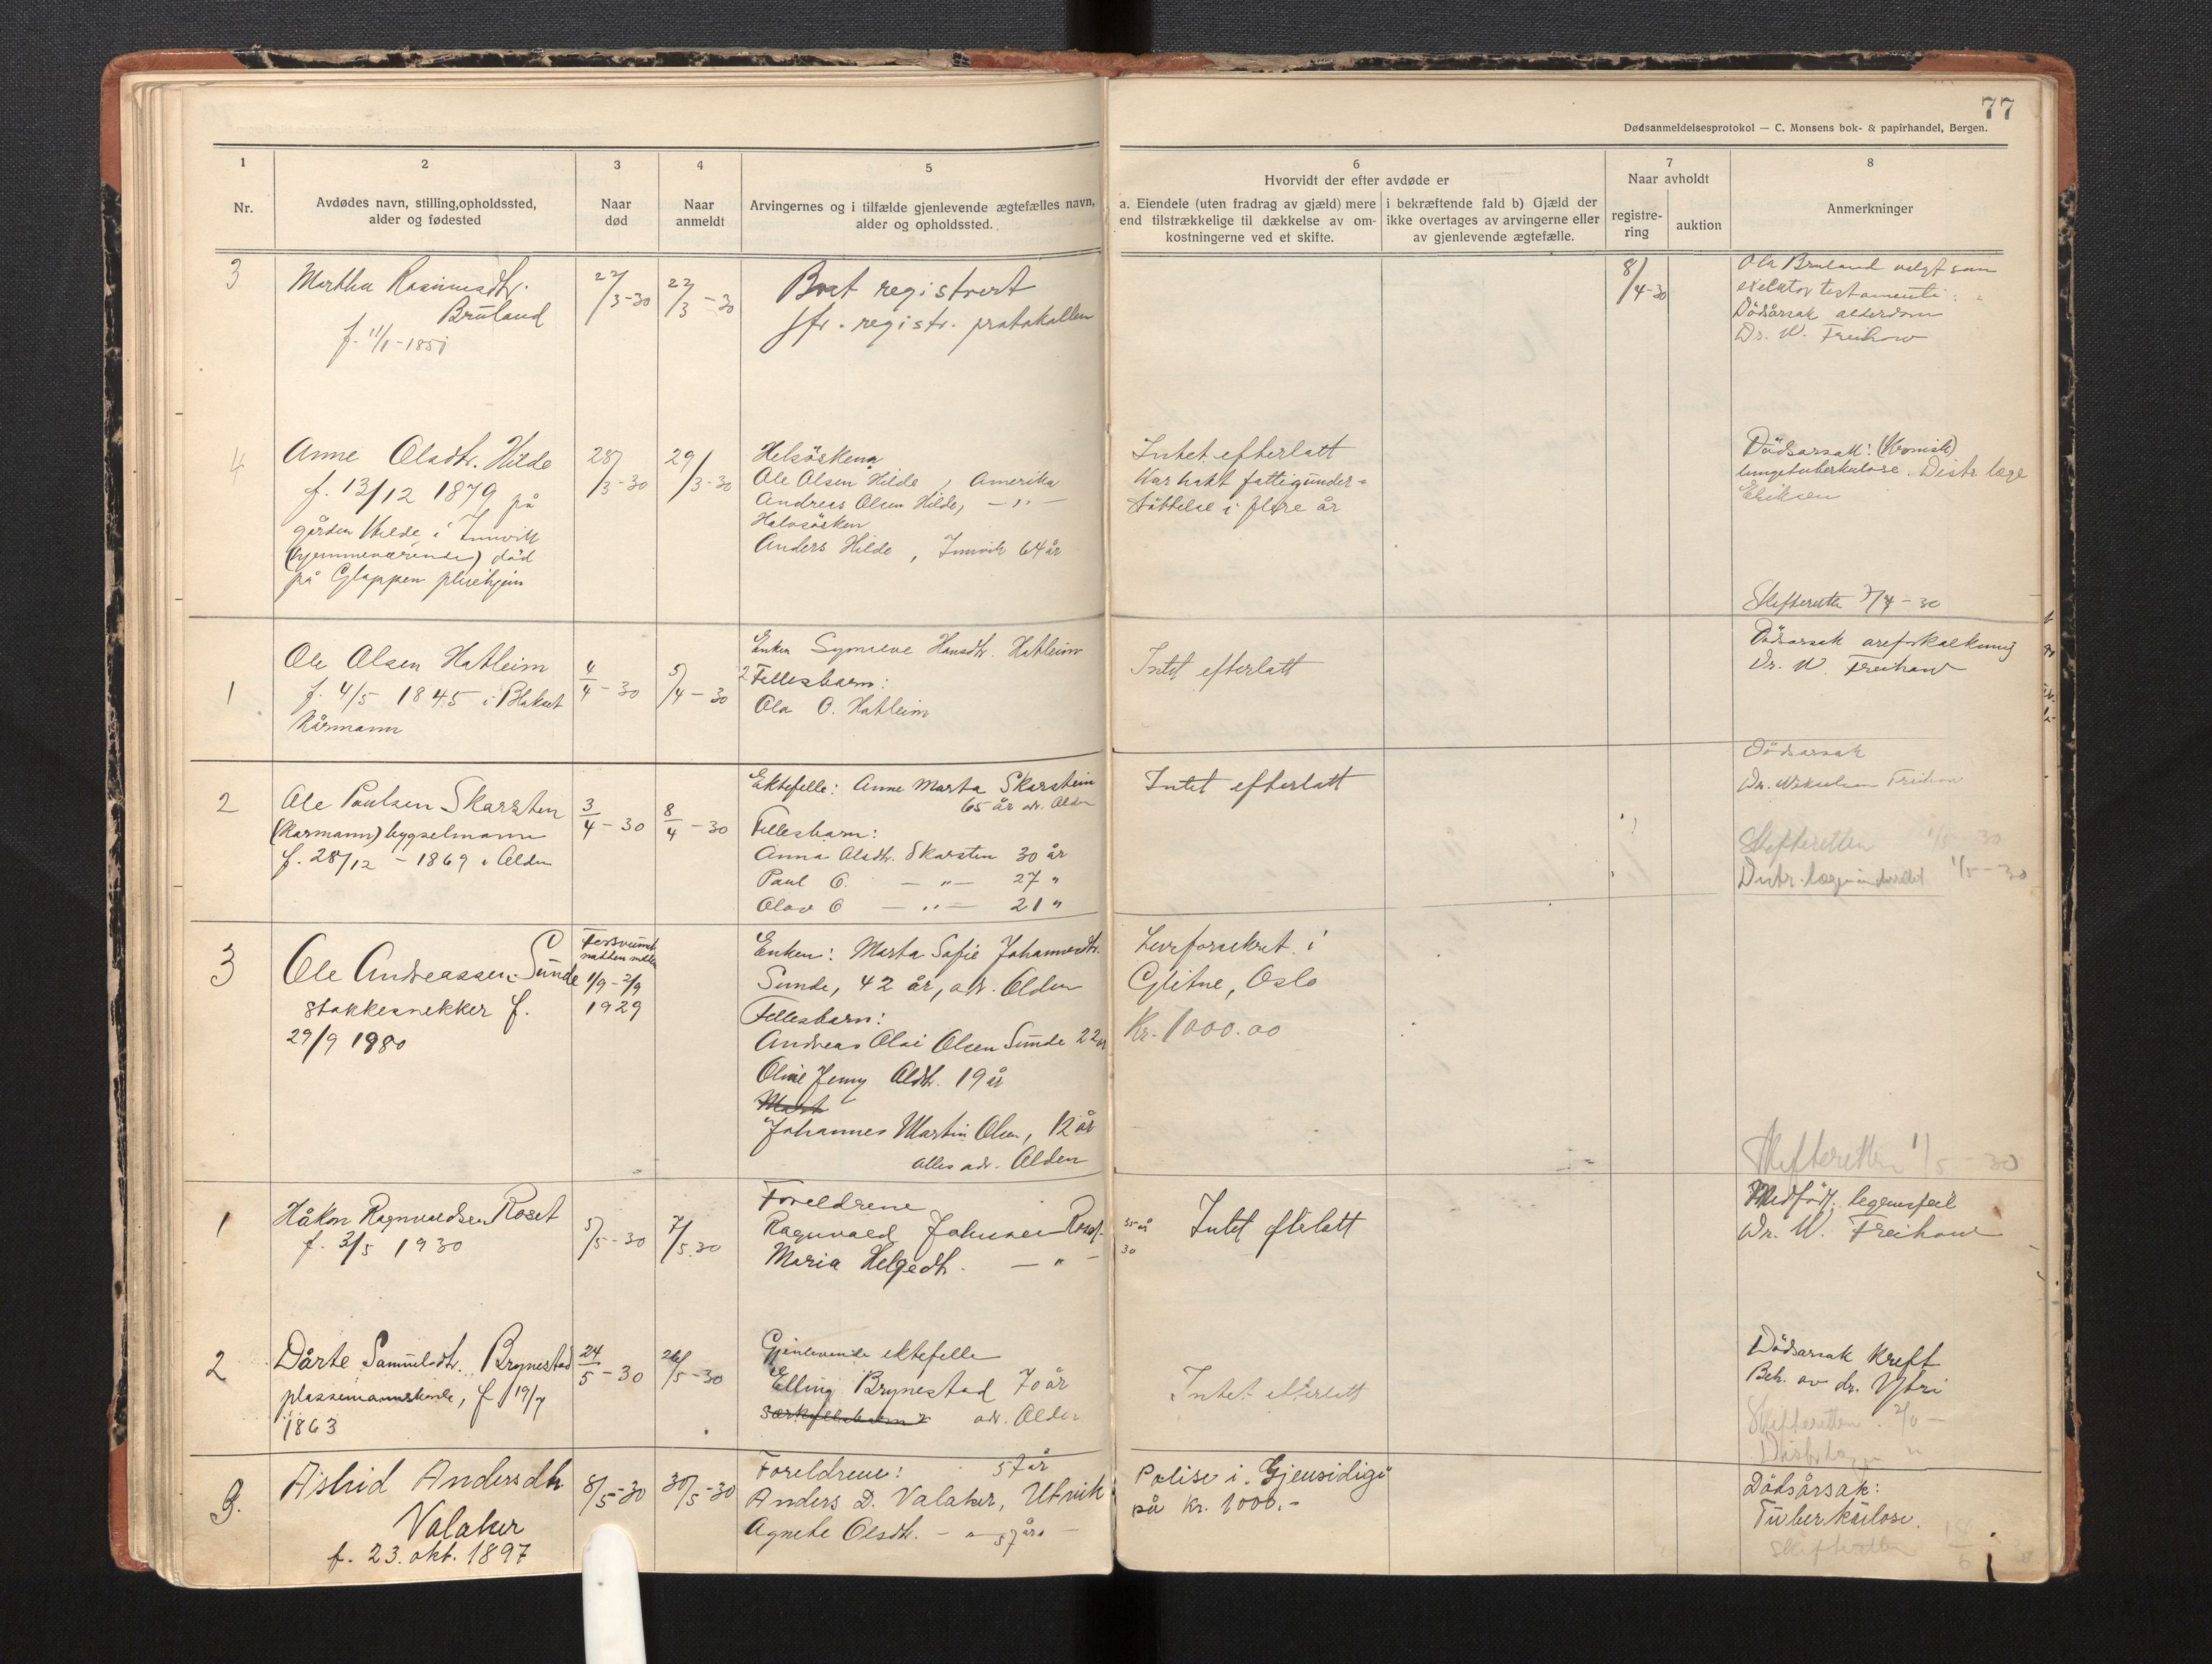 77
Dødsanmeldelsesprotokol — C. Monsens bok- & papirhandel, Bergen.
1
2
3
4
5
6
7
8
Nr.
Avdødes navn, stilling, opholdssted,
alder og fødested
Naar
død
Naar
anmeldt
Arvingernes og i tilfælde gjenlevende ægtefælles navn,
alder og opholdssted.
Hvorvidt der efter avdøde er
a. Eiendele (uten fradrag av gjæld) mere
end tilstrækkelige til dækkelse av om-
kostningerne ved et skifte.
i bekræftende fald b) Gjæld der
ikke overtages av arvingerne eller
av gjenlevende ægtefælle.
Naar avholdt
registre-
ring
auktion
Anmerkninger
3
Martha Rasmusdtr.
Bruland
f. 11/1-1851
22/3-30
22/3-30
Boet registrert
jfr. registr. protokollen
8/4-30
Ola Bruland valgt som
Dödsårsak alderdom
Dr. W. Freihow
4
Anne Olsdtr. Hilde
f. 13/12 1879 på
gården Hilde i Innvik
(hjemmeværende) död
på Glappen pleiehjem
28/3-30
29/3-30
Helsösken
Ole Olsen Hilde, Amerika
Andreas Olsen Hilde, — „ —
Halvsösken
Anders Hilde, Innvik 64 år
Intet efterlatt
Har hatt fattigunder-
støttelse i flere år
Dödsarsak: (Kronisk)
lungetuberkulose. Distr. læge
Eriksen
Skifteretten 7/4-30
1
Ole Olsen Hatleim
f. 4/5 1845 i Blakset
Kårmann
4/4-30
5/4-30
Enken Synneve Hansdtr. Hatleim
2 Fellesbarn:
Ola O. Hatleim
Intet efterlatt
Dödsarsak areforkalkning
Dr. W. Freihow
2
Ole Paulsen Skarsten
(Kårmann) bygselmann
f. 28/12 - 1869 i Olden
3/4-30
8/4-30
Ektefelle: Anne Marta Skarstein
65 år adr. Olden
Fellesbarn:
Anna Olsdtr. Skarsten 30 år
Paul O. — „ — 27 „
Olav O — „ — 21 „
Intet efterlatt
Dödsarsak
Skifteretten 1/5-30
1/5-30
3
Ole Andreassen Sunde
stakkesnekker f.
29/9 1880
Forsvunnet
natten mellem
1/9-2/9
1929
Enken: Marta Sofie Johannesdtr.
Sunde, 42 år, adr. Olden
Fellesbarn:
Andreas Olai Olsen Sunde 22 år
Oline Jenny Olsdtr. 19 år
Mart
Johannes Martin Olsen, 12 år
alles adr. Olden
Livsforsikret i
Glitne, Oslo
Kr. 1000.00
Skifteretten 1/5-30
1
Håkon Ragnvaldsen Roset
f. 3/5 1930
5/5-30
7/5.30
Foreldrene
Ragnvald Johnsen Roset
Maria Helgedtr. — „ —
35 år
30
Intet efterlatt
Medfödt legemsfeil
Dr. W. Freihow
2
Dårte Samuelsdtr. Brynestad
plassemannskone, f 19/7
1863
24/5-30
26/5-30
Gjenlevende ektefelle
Elling Brynestad 70 år
adr. Olden
Intet efterlatt
Dödsarsak Kreft
Beh. av dr. Ytri
Skifteretten
3.
Astrid Andersdtr.
Valaker
f. 23. okt. 1897
8/5-30
30/5-30
Foreldrene: 57 år
Anders D. Valaker, Utvik
Agnete Olsdtr. — „ — 57 år
Polise i Gjensidige
på Kr. 1000.-
Dödsårsak:
Tuberkulose.
Skifteretten 18/6-30